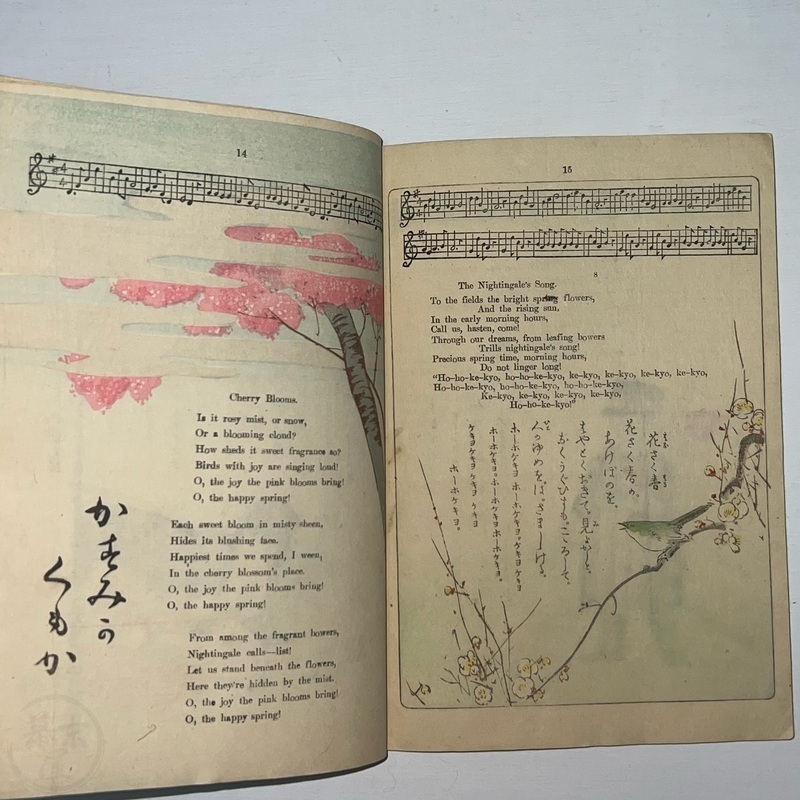 14
Cherry Blooms.
Is it rosy mist, or snow,
Or a blooming cloud?
How sheds it sweet fragrance so?
Birds with joy are singing loud!
O, the joy the pink blooms bring!
O, the happy spring!
Each sweet bloom in misty sheen,
Hides its blushing face.
Happiest times we spend, I ween,
In the cherry blossom's place.
O, the joy the pink blooms bring!
O, the happy spring!
From among the fragrant bowers,
Nightingale calls—list!
Let us stand beneath the flowers,
Here they're hidden by the mist.
O, the joy the pink blooms bring!
O, the happy spring!
かすみか
くもか
15
8
The Nightingale's Song.
To the fields the bright spring flowers,
And the rising sun.
In the early morning hours,
Call us, hasten, come!
Through our dreams, from leafing bowers
Trills nightingale's song!
Precious spring time, morning hours,
Do not linger long!
"Ho-ho-ke-kyo, ho-ho-ke-kyo, ke-kyo, ke-kyo, ke-kyo, ke-kyo,
Ho-ho-ke-kyo, ho-ho-ke-kyo, ho-ho-ke-kyo,
Ke-kyo, ke-kyo, ke-kyo, ke-kyo,
Ho-ho-ke-kyo!"
花さく春
花さく春の、
あけぼのを、
はやとくおきて、見よかしと、
なくうぐひすも、こころして、
人のゆめをば、さましけり、
ホーホケキヨ ホーホケキヨ、ケキヨ ケキヨ
ケキヨ ケキヨ
ホーホケキヨ。